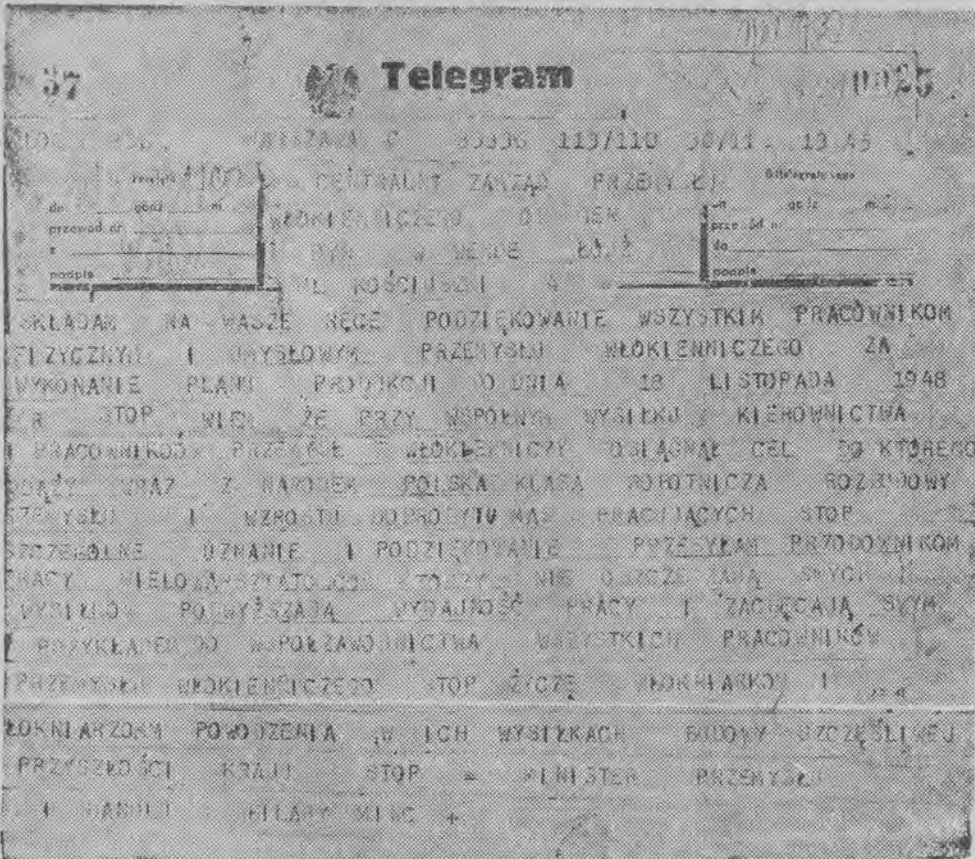 37 Telegram 0025
WARSZAWA C 113/110
CENTRALNY ZARZĄD PRZEMYSŁU
dn. godz. m.
WŁÓKIENNICZEGO
przewód nr
z
podpis
godz. m.
do
podpis
UL KOŚCIUSZKI 4
SKŁADAM NA WASZE RĘCE PODZIĘKOWANIE WSZYSTKIM PRACOWNIKOM
FIZYCZNYM I UMYSŁOWYM PRZEMYSŁU WŁÓKIENNICZEGO ZA
WYKONANIE PLANU PRODUKCJI DO DNIA 18 LISTOPADA 1948
R STOP WIEM ŻE PRZY WSPÓLNYM WYSIŁKU KIEROWNICTWA
I PRACOWNIKÓW PRZEMYSŁ WŁÓKIENNICZY OSIĄGNĄŁ CEL DO KTÓREGO
DĄŻY WRAZ Z NARODEM POLSKA KLASA ROBOTNICZA ROZBUDOWY
PRZEMYSŁU I WZROSTU DOBROBYTU MAS PRACUJĄCYCH STOP
SZCZEGÓLNE UZNANIE I PODZIĘKOWANIE PRZESYŁAM PRZODOWNIKOM
PRACY WIELOWARSZTATOWCOM KTÓRZY NIE SWYCH
WYSIŁKÓW PODWYŻSZAJĄ WYDAJNOŚĆ PRACY I ZACHĘCAJĄ SWYM
PRZYKŁADEM DO WSPÓŁZAWODNICTWA WSZYSTKICH PRACOWNIKÓW
PRZEMYSŁU WŁÓKIENNICZEGO STOP ŻYCZĘ WŁÓKNIARKOM I
ŁÓKNIARZOM POWODZENIA W ICH WYSIŁKACH BUDOWY SZCZĘŚLIWEJ
PRZYSZŁOŚCI KRAJU STOP = MINISTER PRZEMYSŁU
I HANDLU HILARY MINC +